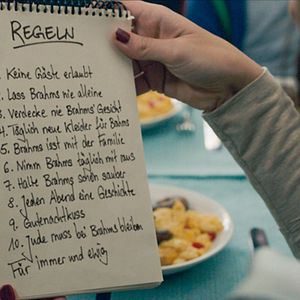 REGELN
1. Keine Gäste erlaubt
2. Lass Brahms nie alleine
3. Verdecke nie Brahms' Gesicht
4. Täglich neue Kleider für Brahms
5. Brahms isst mit der Familie
6. Nimm Brahms täglich mit raus
7. Halte Brahms schön sauber
8. Jeden Abend eine Geschichte
9. Gutenachtkuss
10. Jude muss bei Brahms bleiben
Für immer und ewig